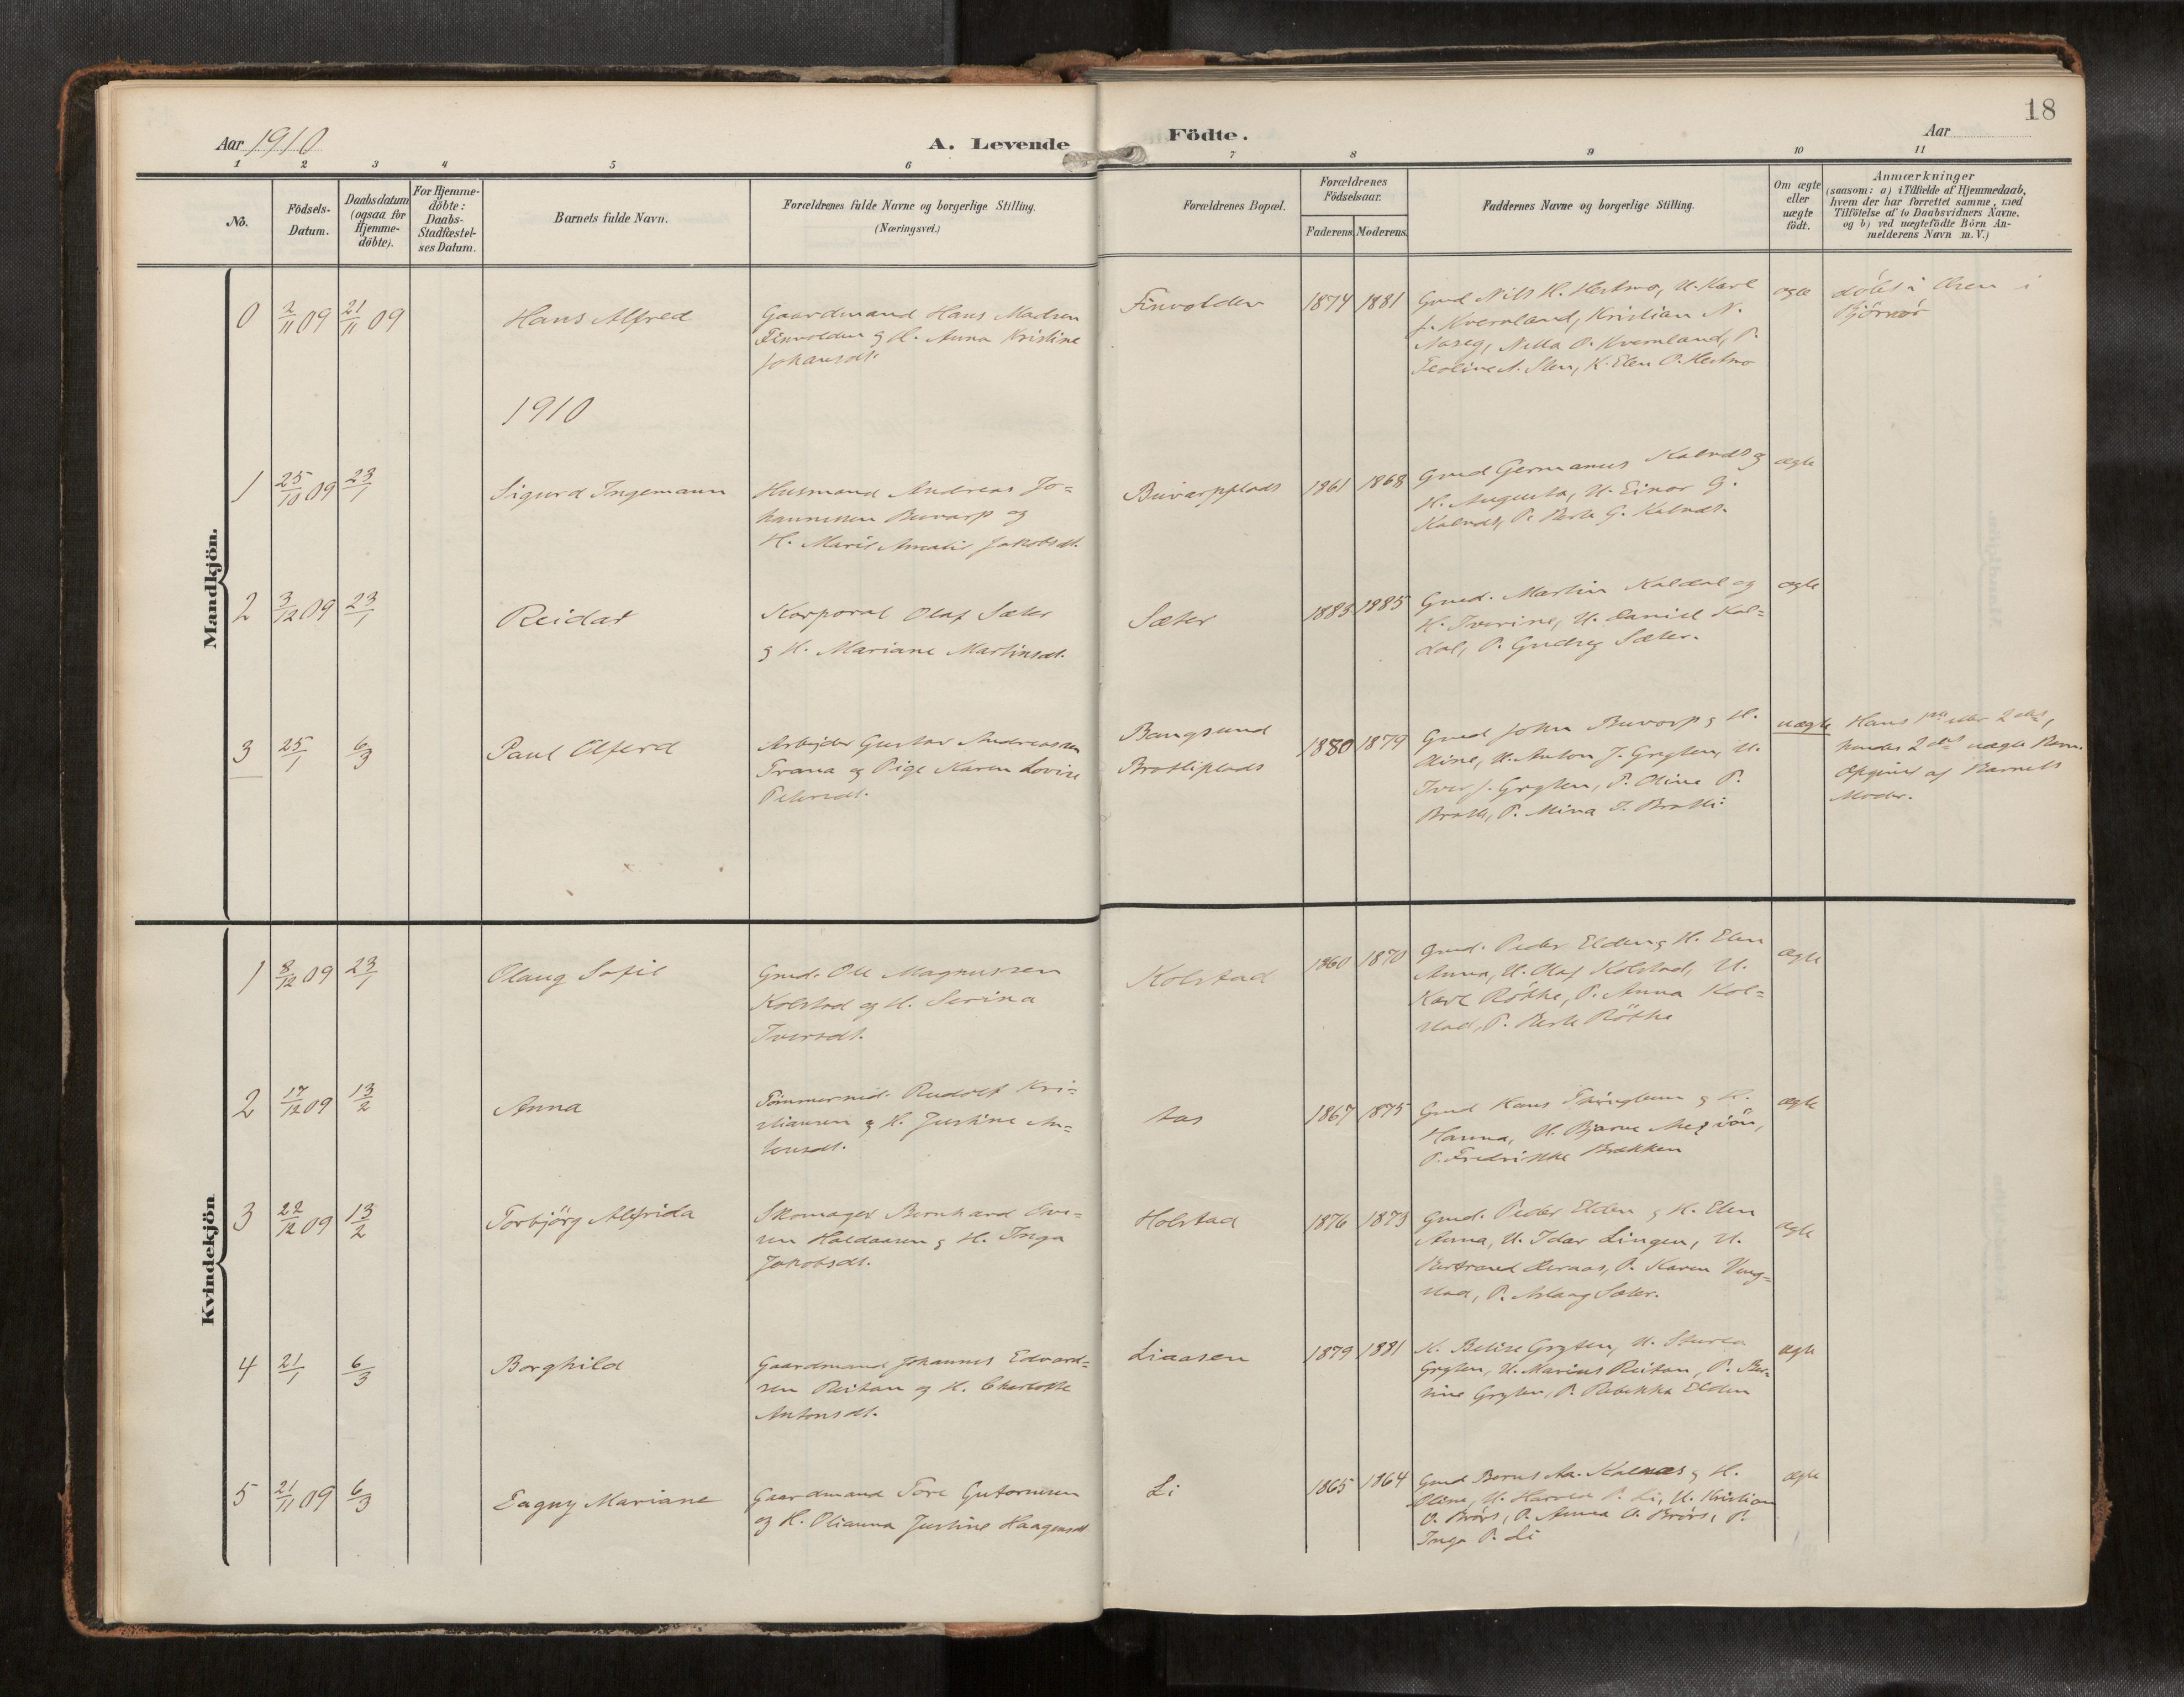 18
Aar 1910
A. Levende
Födte.
Aar
1 2 3 4 5 6 7 8 9 10 11
No.
Födsels-
Datum.
Daabsdatum
(ogsaa for
Hjemme-
döbte).
For Hjemme-
döbte:
Daabs-
Stadfæstel-
ses Datum.
Barnets fulde Navn.
Forældrenes fulde Navne og borgerlige Stilling.
(Næringsvei.)
Forældrenes Bopæl.
Forældrenes
Födselsaar.
Faderens. Moderens.
Faddernes Navne og borgerlige Stilling.
Om ægte
eller
uægte
födt.
Anmærkninger
(saasom: a) i Tilfælde af Hjemmedaab,
hvem der har forrettet samme, med
Tilföielse af to Daabsvidners Navne,
og b) ved uægtefödte Börn An-
melderens Navn m. V.)
Mandkjön.
0
2/11 09
21/11 09
Hans Alfred
Gaardmand Hans Madsen
Finvolden og H. Anna Kristine
Johansdt.
Finvolden
1874
1881
Gmd Nils H. Hestmo, U. Karl
J. Kvernland, Kristian N.
Kvernland, P.
K. Elen O. Hestmo
ægte
döbt i Osen i
Björnör
1910
1
25/10 09
23/1
Sigurd Ingemann
Husmand Andreas Jo-
hannessen Buvarp og
H. Marie Amalie Jakobsdt.
Buvarpplads
1861
1868
Gmd Germanus Kalnæs og
H. Augusta, U. Einar G.
Kalnæs, P. G. Kalnæs.
ægte
2
3/12 09
23/1
Reidar
Korporal Olaf Sæter
og H. Mariane Martinsdt.
Sæter
1883
1885
Gmd. Martin Kaldal og
H. Iverine, U. Daniel Kal-
dal, P. Sæter.
ægte
3
25/1
6/3
Paul Alferd
Arbeider Gustav Andreassen
Trana og Pige Karen Lovise
Petersdt.
Bangsund
Bratliplads
1880
1879
Gmd John Buvarp og H.
Oline, U. Anton J. Grylen, U.
Iver J. Grylen, P. Oline P.
Bratli, P. Mina I. Bratli
uægte
Hans 1ste eller 2det,
hendes 2det uægte Barn.
Opgivet af Barnets
Moder.
Kvindekjön
1
8/12 09
23/1
Olaug Sofie
Gmd. Ole Magnussen
Kolstad og H. Serina
Iversdt.
Kolstad
1860
1870
Gmd. Peder Elden og H. Elen
Anna, U. Olaf Kolstad, U.
Karl Röthe, P. Anna Kol-
stad, P. Röthe
ægte
2
17/12 09
13/2
Anna
Tömmermd. Rudolf Kri-
stiansen og H. Justine An-
tonsdt.
Aas
1867
1875
Gmd Hans og H.
Hanna, U. Bjarne
P. Fredrikke Brækken
ægte
3
22/12 09
13/2
Torbjörg Alfrida
Skomager Bernhard
Haldaasen og H. Inga
Jakobsdt.
Holstad
1876
1873
Gmd. Peder Elden og H. Elen
Anna, U. Idar Lingen, U.
Bertrand P. Karen Veng-
stad, P. Aslaug Sæter.
ægte
4
21/1
6/3
Borghild
Gaardmand Johannes Edvard-
sen Reitan og H. Charlotte
Antonsdt.
Liaasen
1879
1881
K. Grylen, U. Sturla
Grylen, U. Marius Reitan, P.
Grylen, P. Rebekka Elden
ægte
5
21/11 09
6/3
Dagny Mariane
Gaardmand Tore Gutormsen
og H. Olianna Justine Haagensdt
Li
1865
1864
Gmd Aa. Kalnæs og H.
Oline, U. Harald P. Li, U. Kristian
O. Brörs, P. Anna O. Brörs, P.
Inga P. Li
ægte